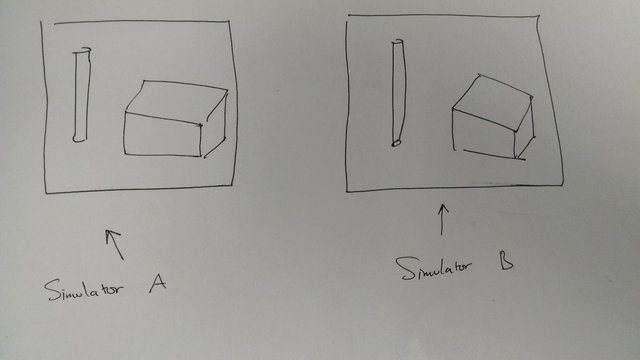 Simulator A
Simulator B